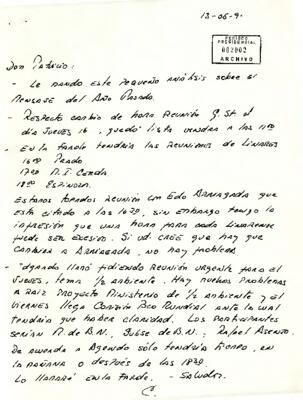 13-06-9.
PERIODO
PRESIDENCIAL
002002
ARCHIVO
Don Patricio:
- Le mando este pequeño análisis sobre el
Mensaje del Año Pasado.
- Respecto cambio de hora Reunión G. St. el
día Jueves 16, quedó lista vendrá a las 11:00
- En la tarde tendría las reuniones de Linares
16:00 Prado
17:00 M.I. Cerda
18:00 Espinoza.
Estamos topados reunión con Edo Arriagada que
está citado a las 16:30, sin embargo tengo la
impresión que una hora para cada Linarense
puede ser excesivo. Si ud. cree que hay que
cambiar a Arriagada, no hay problema
- llamó pidiendo reunión urgente para el
Jueves, tema M/ambiente. Hay muchos problemas
a raíz Proyecto Ministerio M/ambiente y el
Viernes llega Comisión Bco Mundial ante la cual
tendría que haber claridad. Los participantes
serían M. de B.N., Subse de B.N., Rafael Asenjo.
De acuerdo a Agenda sólo tendría tiempo, en
la mañana o después de las 18:30.
Lo llamaré en la tarde. - Saludos.
C.